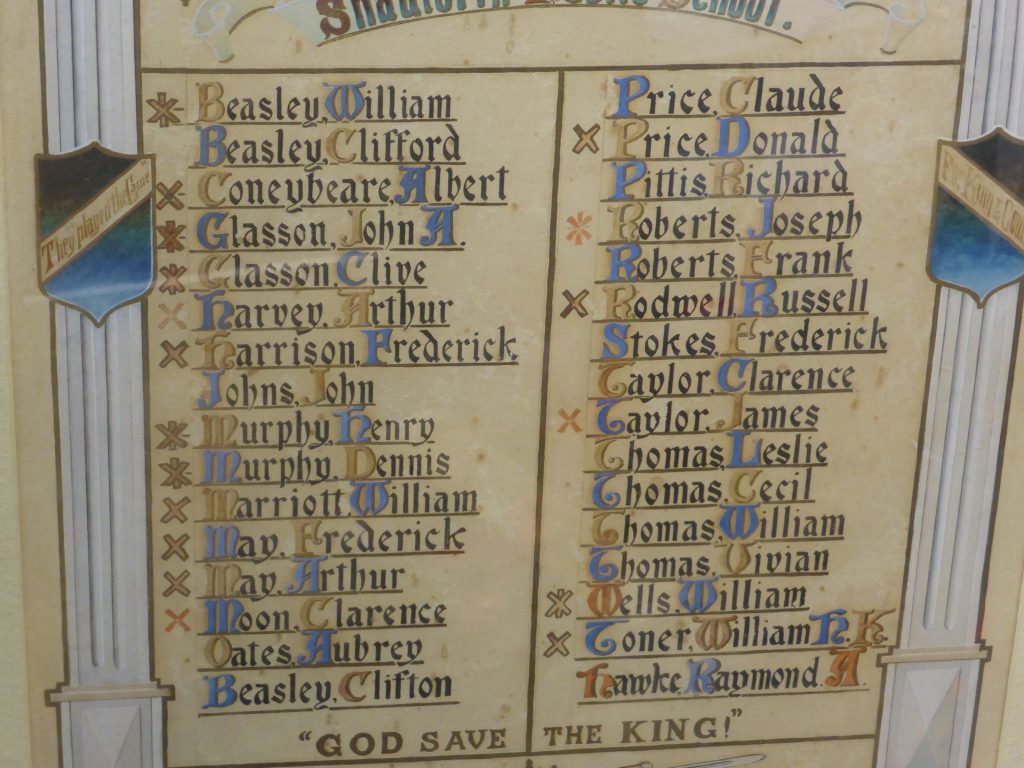 Shadforth Public School.
They played the Game
Beasley, William
Beasley, Clifford
Coneybeare, Albert
Glasson, John A.
Glasson, Clive
Harvey, Arthur
Harrison, Frederick
Johns, John
Murphy, Henry
Murphy, Dennis
Marriott, William
May, Frederick
May, Arthur
Moon, Clarence
Oates, Aubrey
Beasley, Clifton
Price, Claude
Price, Donald
Pittis, Richard
Roberts, Joseph
Roberts, Frank
Rodwell, Russell
Stokes, Frederick
Taylor, Clarence
Taylor, James
Thomas, Leslie
Thomas, Cecil
Thomas, William
Thomas, Vivian
Wells, William
Toner, William H. K.
Hawke, Raymond. A.
For King &
"GOD SAVE THE KING!"